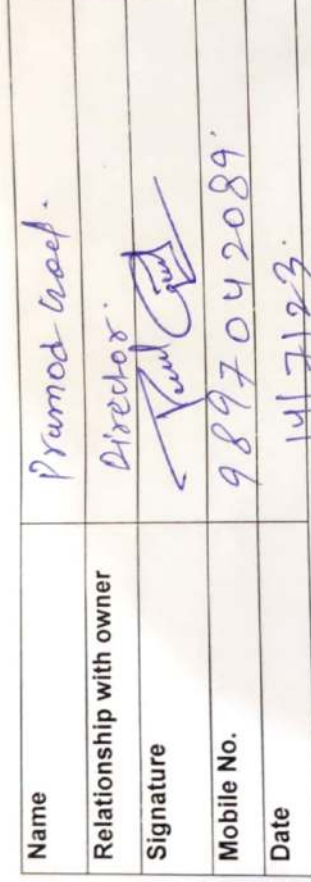 Name Pramod Goel.
Relationship with owner Director.
Signature
Mobile No. 9897042089.
Date 14/7/23.